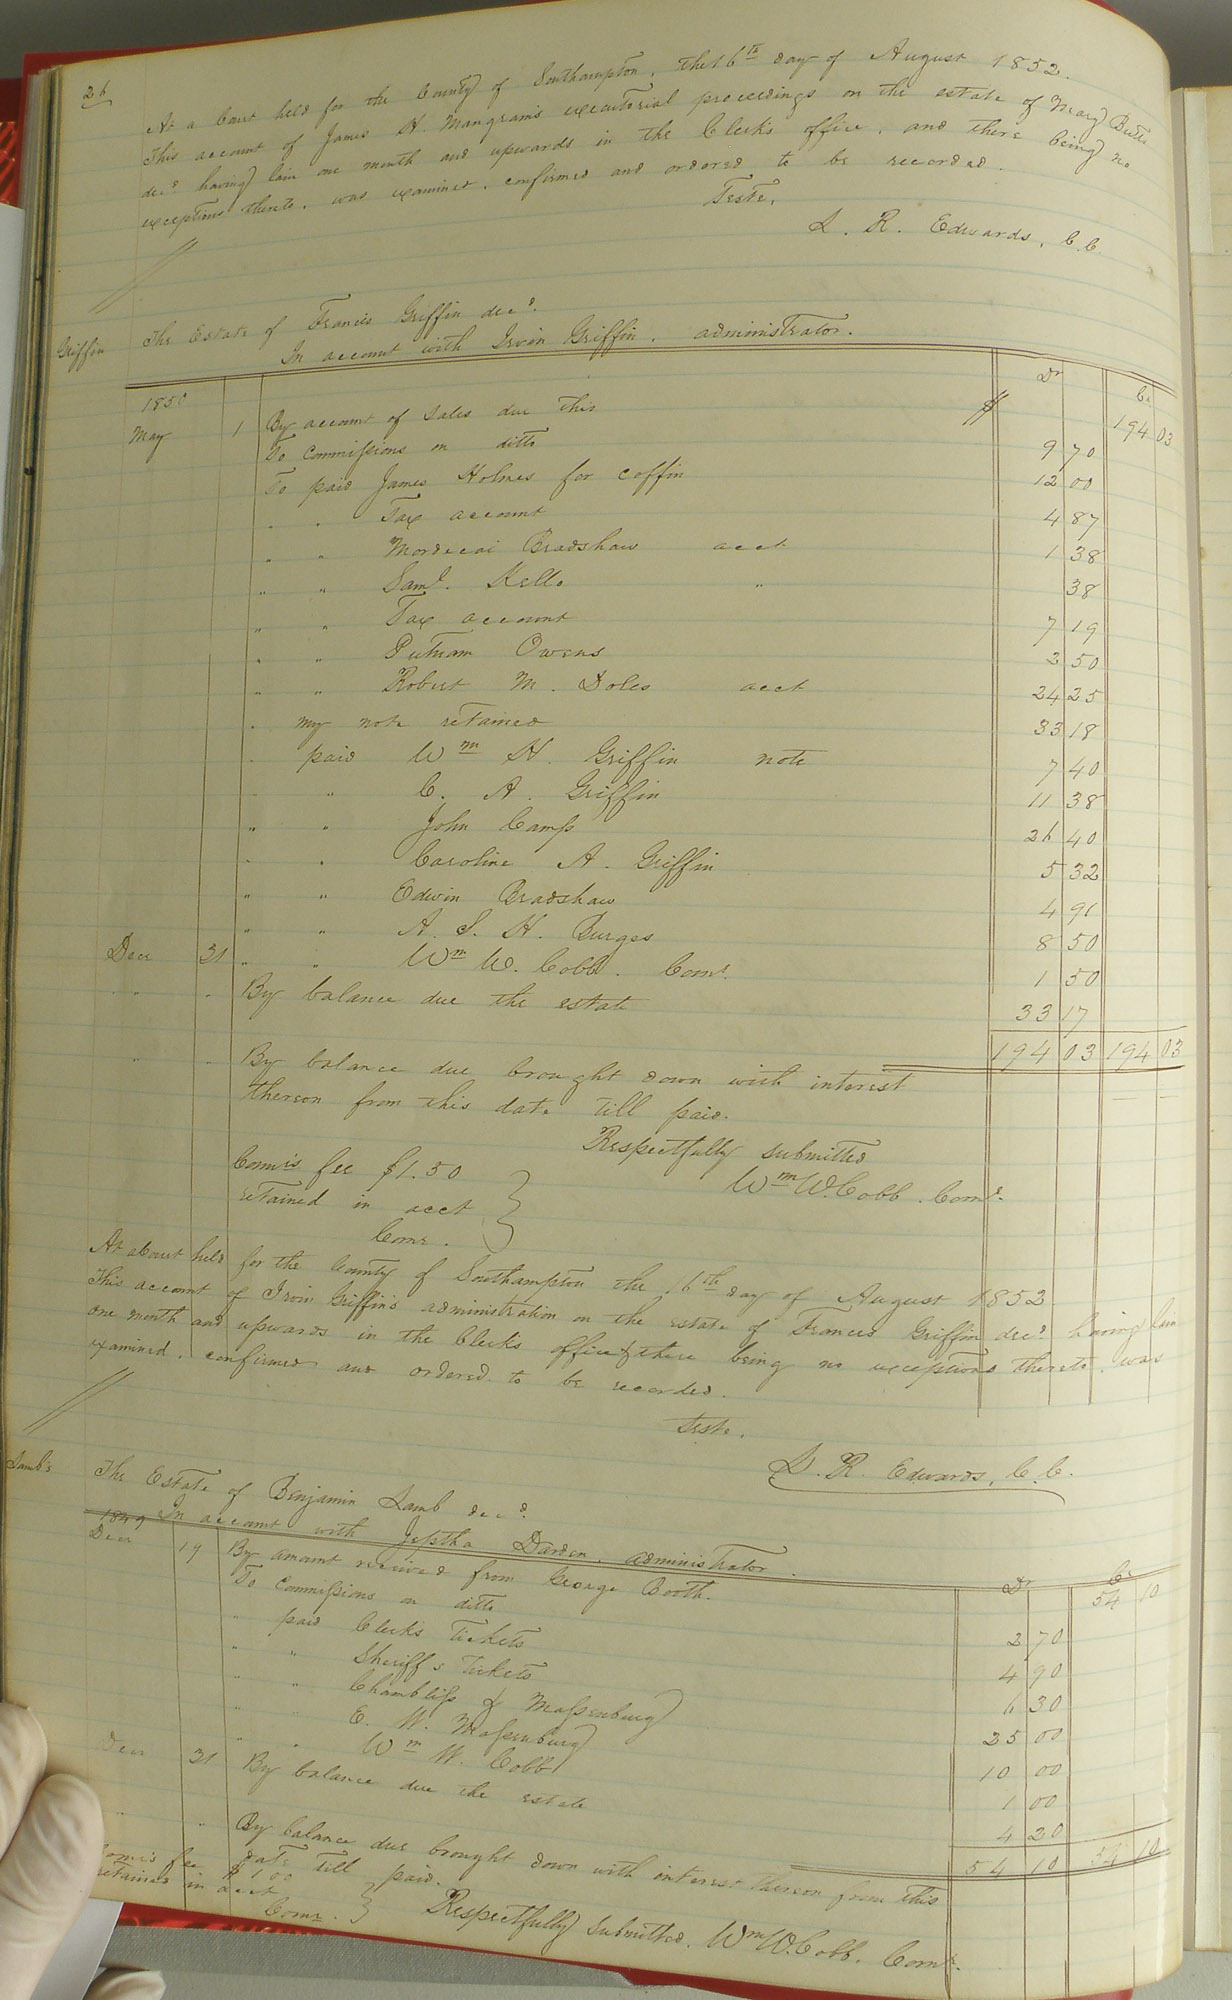 26
At a Court held for the County of Southampton, the 16th day of August 1852.
This account of James H. Mangram's executorial proceedings on the estate of Mary Butts
decd having lain one month and upwards in the Clerk's office, and there being no
exceptions thereto, was examined, confirmed and ordered to be recorded.
Teste,
L. R. Edwards, C.C.
Griffin The Estate of Francis Griffin decd.
In account with Irvin Griffin, administrator.
Dr Cr
1850
May 1 By account of Sales due this $ 194 03
To Commissions on ditto 9 70
To paid James Holmes for coffin 12 00
" " Tax account 4 87
" " Mordecai Bradshaw acct 1 38
" " Saml. Kello " 38
" " Tax account 7 19
" " Putnam Owens 2 50
" " Robert M. Doles acct 24 25
" my note retained 33 18
" paid Wm H. Griffin note 7 40
" " C. A. Griffin 11 38
" " John Camp 26 40
" " Caroline A. Griffin 5 32
" " Edwin Bradshaw 4 91
" " A. S. H. Burges 8 50
Decr 31 " " Wm W. Cobb. Comr. 1 50
" " " By balance due the estate 33 17
194 03 194 03
" " By balance due brought down with interest
thereon from this date till paid.
Respectfully submitted
Wm W. Cobb. Comr.
Comr's fee $1.50
retained in acct
Comr.
At a Court held for the County of Southampton the 16th day of August 1852
This account of Irvin Griffin's administration on the estate of Francis Griffin decd. having lain
one month and upwards in the Clerk's office & there being no exceptions thereto, was
examined, confirmed and ordered to be recorded.
Teste.
L. R. Edwards, C.C.
Lamb's The Estate of Benjamin Lamb decd.
In account with Jeptha Darden, administrator.
Dr Cr
1849
Decr 19 By amount received from George Booth. 54 10
To Commissions on ditto 2 70
" paid Clerk's Tickets 4 90
" " Sheriff's Tickets 6 30
" " Chambliss & Massenburg 25 00
" " E. W. Massenburg 10 00
" " Wm W. Cobb 1 00
Decr 31 By balance due the estate 4 20
54 10 54 10
" " By balance due brought down with interest thereon from this
date till paid.
Comr's fee $1.00
retained in acct
Comr. Respectfully Submitted. Wm W. Cobb. Comr.